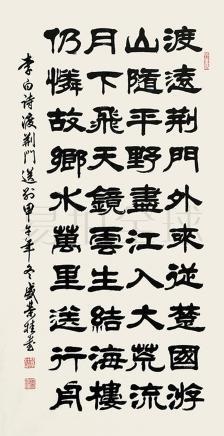 渡遠荊門外來從楚國游
山隨平野盡江入大荒流
月下飛天鏡雲生結海樓
仍憐故鄉水萬里送行舟
李白诗渡荊門送别甲午年冬盛